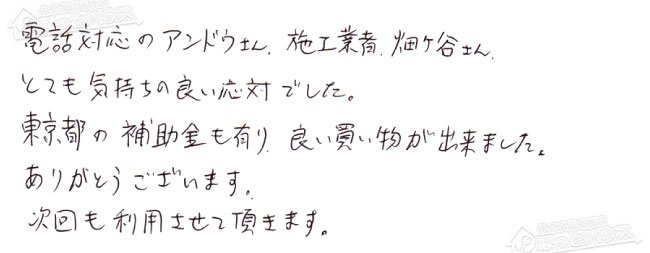 電話対応のアンドウさん、施工業者、畑ケ谷さん、
とても気持ちの良い応対でした。
東京都の補助金も有り、良い買い物が出来ました。
ありがとうございます。
次回も利用させて頂きます。